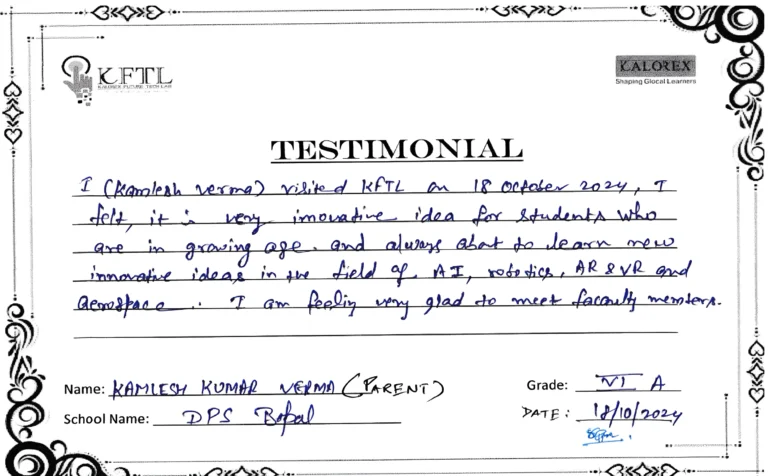 KFTL
KALOREX FUTURE TECH LAB
KALOREX
Shaping Glocal Learners
TESTIMONIAL
I (Kamlesh verma) visited KFTL on 18 October 2024, I
felt, it is very innovative idea for students who
are in growing age. and always to learn new
innovative ideas in the field of AI, robotics, AR & VR and
Aerospace. I am feeling very glad to meet faculty members.
Name: KAMLESH KUMAR VERMA (PARENT)
Grade: VI A
School Name: DPS Bopal
DATE: 18/10/2024